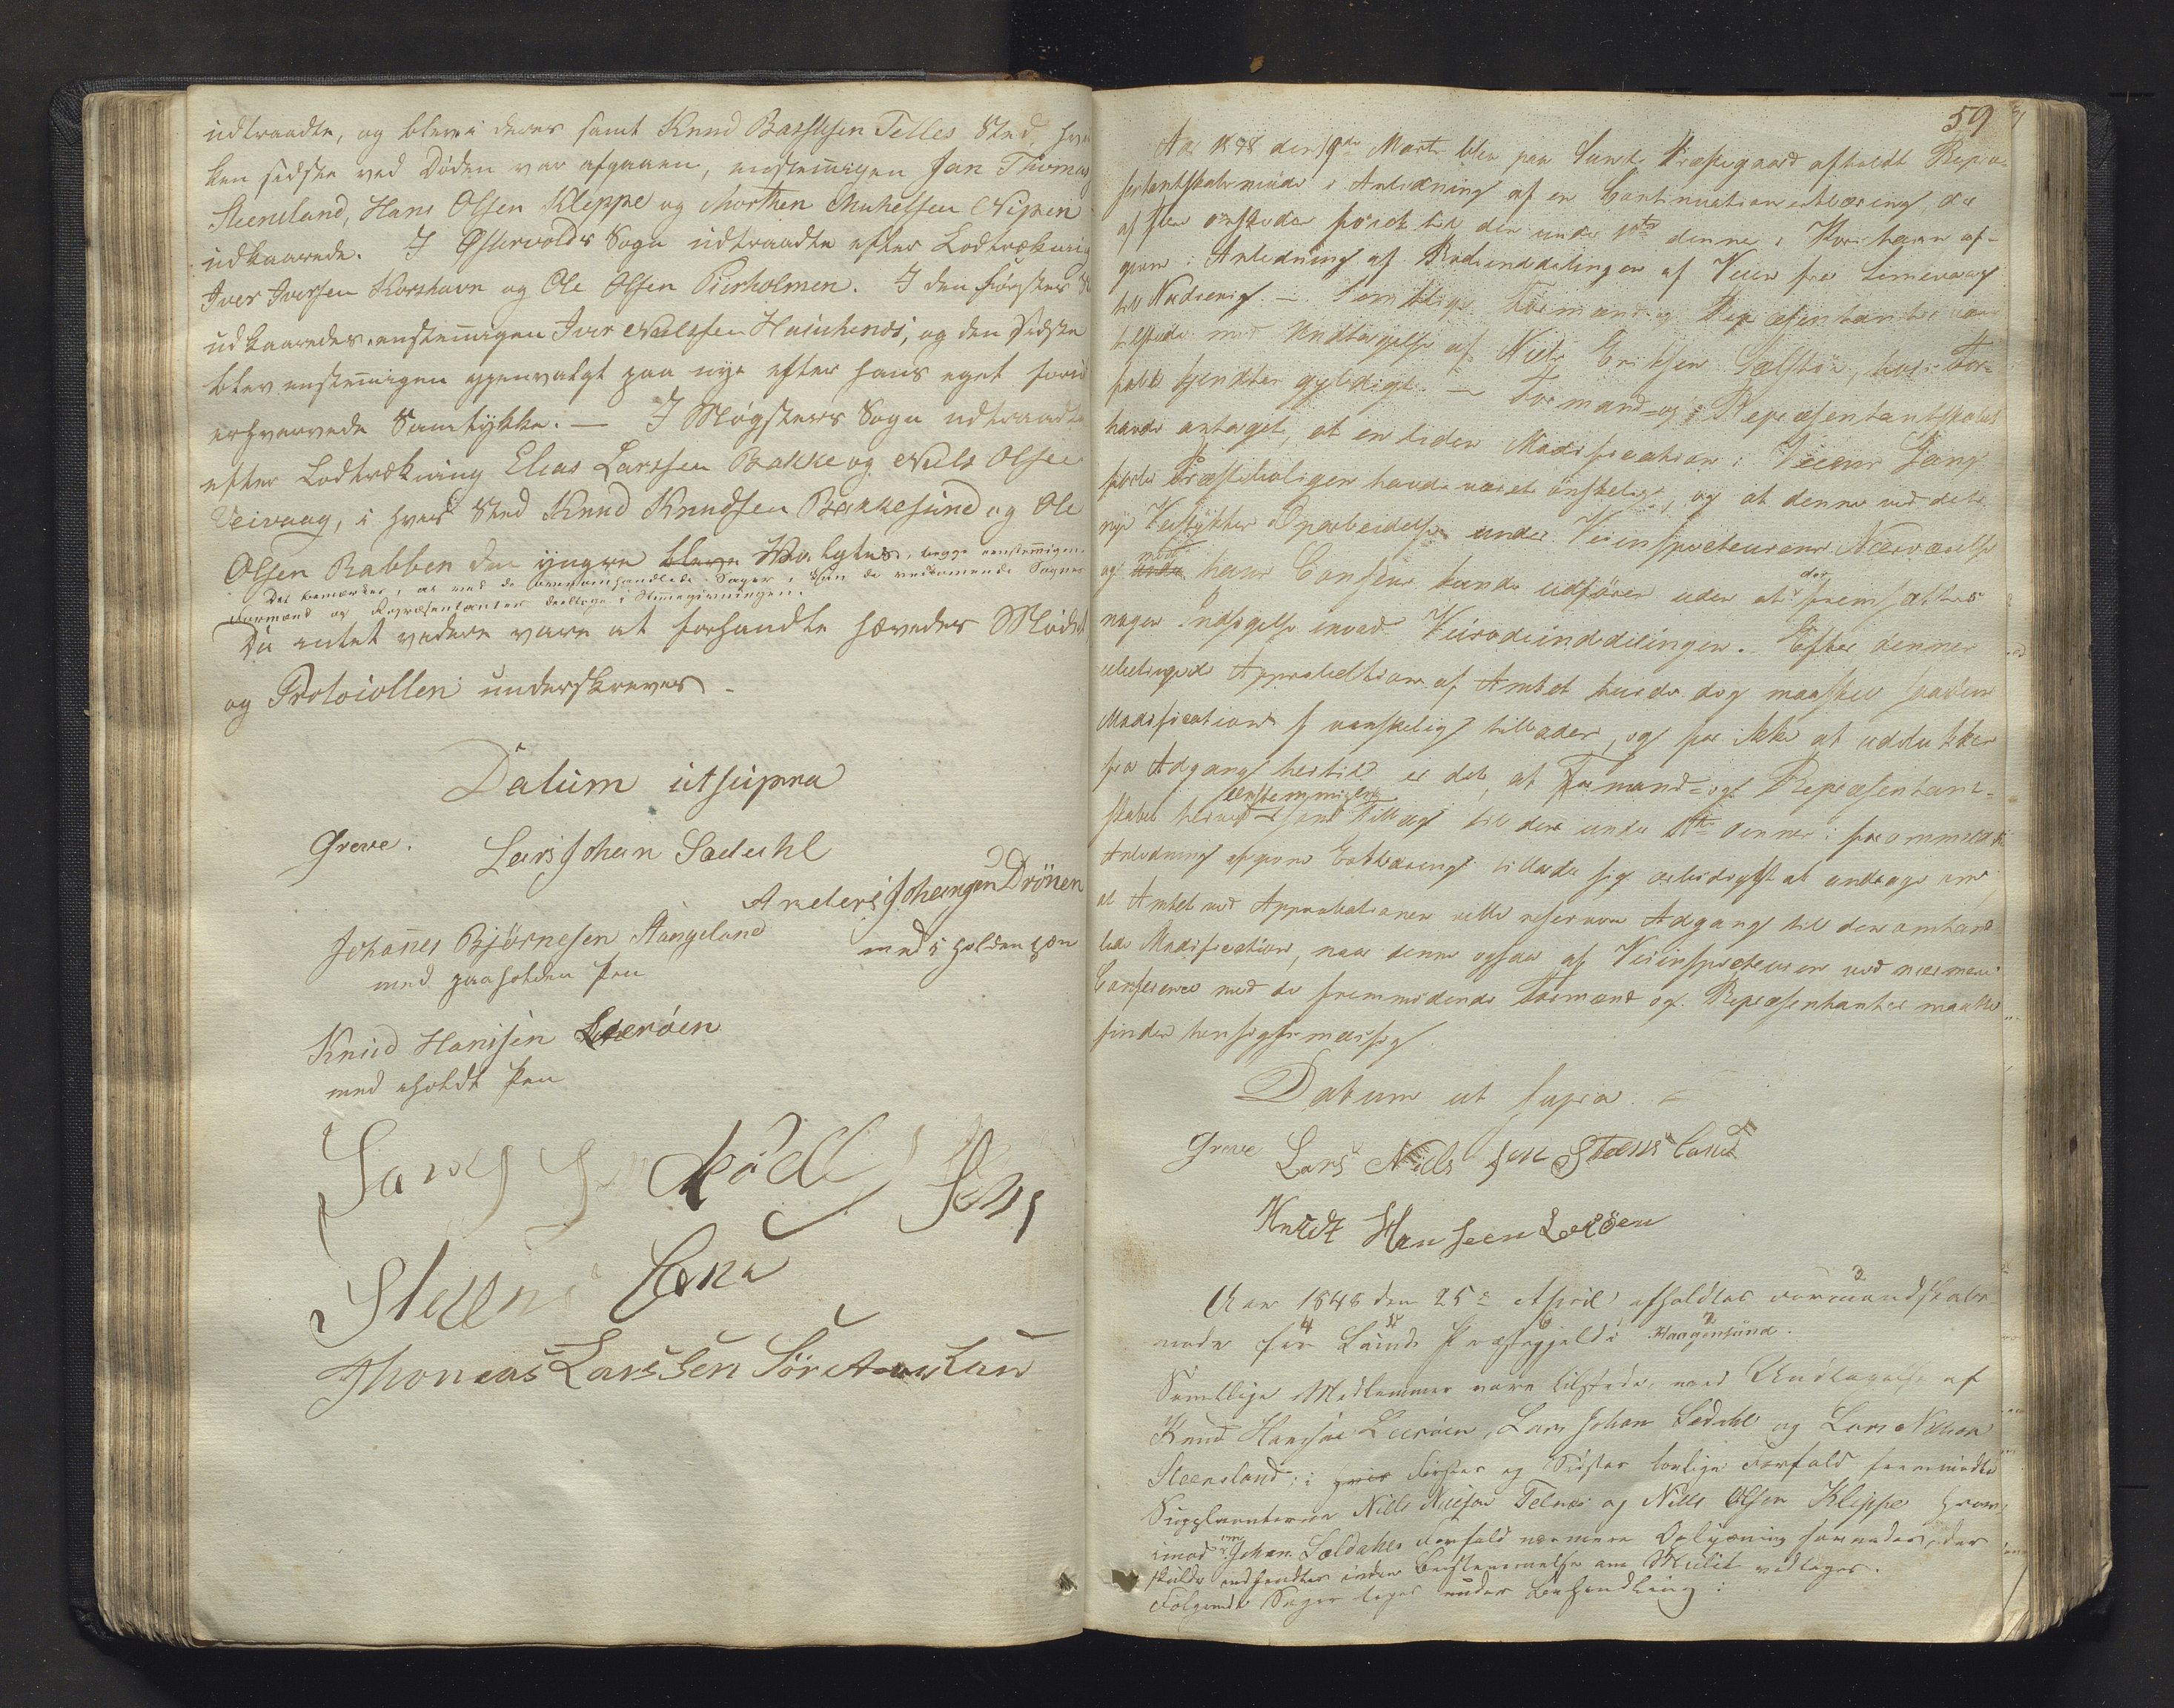 udtraadte, og bleve i deres samt Knud Bastesen Telles Sted, hvil
ken sidste ved Døden var afgaaen, eenstemigen Jan Thomas
Steensland, Hans Olsen Kleppe og Morthen Mikkelsen Nipen
udkaarede. I Østervolds Sogn udtraadte efter Lodtrækning
Iver Iversen Korshavn og Ole Olsen Pierholmen. I den Førstes St
udkaaredes eenstemigen Iver Nielsen, og den Sidste
blev eenstemigen gjenvalgt paa nye efter hans eget forud
erhvervede Samtykke. — I Møgsters Sogn udtraadte
efter Lodtrækning Elias Larssen Bakke og Niels Olsen
Veivaag, i hvis Sted Knud Knudsen Bakkesund og Ole
Olsen Rabben den yngre bleve Valgtes, begge eenstemigen.
Det bemærkes, at ved de ovenomhandlede Sager, kun de vedkomende Sognes
Formænd og Repræsentanter deeltoge i Stemegivningen.
Da intet videre vare at forhandle hævedes Mødet
og Protocollen underskreves.
Datum utsupra
Greve. Lars Johan Sædahl
Anders Johansen Drönen
med i holden Pen
Johanes Bjørnesen Stangeland
med paaholden Pen
Knud Hansen Leerøen
med iholdt Pen
Lars
Steens land
Thomas Larssen
59
Aar 1848 den 19de Marts blev paa Sunds Præstegaard afholdt Repræ-
sentantskabsmøde i Anledning af en Continuationserklæring der
af Flere ønskedes føiet til den under 10de dennes i Korshavn af-
givne i Anledning af Rodeinddelingen af Veien fra Limevaag
til. — Samtlige Formænd og Repræsentanter vare
tilstede med Undtagelse af Niels Eriksen, hvis For-
fald kjendtes gyldigt. — Formand- og Repræsentantskabet
havde antaget, at en liden Modification i Veiens Gang
forbi Præsteboligen havde været ønskelig, og at denne ved det
nye Veistykkes Oparbeidelse under Veiinspecteurens Nærværelse
og under med hans Consens kunde udføres uden at der fremsattes
nogen Indsigelse imod Veirodeinddelingen. Efter dennes
ubetingede Approbation af Amtet turde dog maaskee saadan
Modification vanskelig tillades, og for ikke at udelukkes
fra Adgang hertil er det, at Formand- og Repræsentant-
skabet herved eenstemmigen som Tillæg til den under 10de dennes i foranmeldte
Anledning afgivne Erklæring tillader sig ærbødigst at andrage om
at Amtet ved Approbationen vilde reservere Adgang til den omhand-
lede Modification, naar denne ogsaa af Veiinspecteuren ved nærmere
Conference med de fremmødende Formænd og Repræsentanter maatte
findes hensigtsmæssig.
Datum ut supra.
Greve Lars Niels sen Steens land
Knudt Hanseen Leröen
Aar 1848 den 25de April afholdtes Formandskabs
møde for Sunds Præstegjeld i Haagensund.
Samtlige Medlemmer vare tilstede, med Undtagelse af
Knud Hansen Leerøen, Lars Johan Sædahl og Lars Nilsen
Steensland; i hvis Førstes og Sidstes lovlige Forfald fremmødte
Suppleanterne Niels Nielsen Telnæs og Niels Olsen Kleppe hvor-
imod om Johan Sældahls Forfald nærmere Oplysning savnedes, der
skulde indhendtes inden Bestemmelse om Mulct vedtages.
Følgende Sager toges under Behandling: